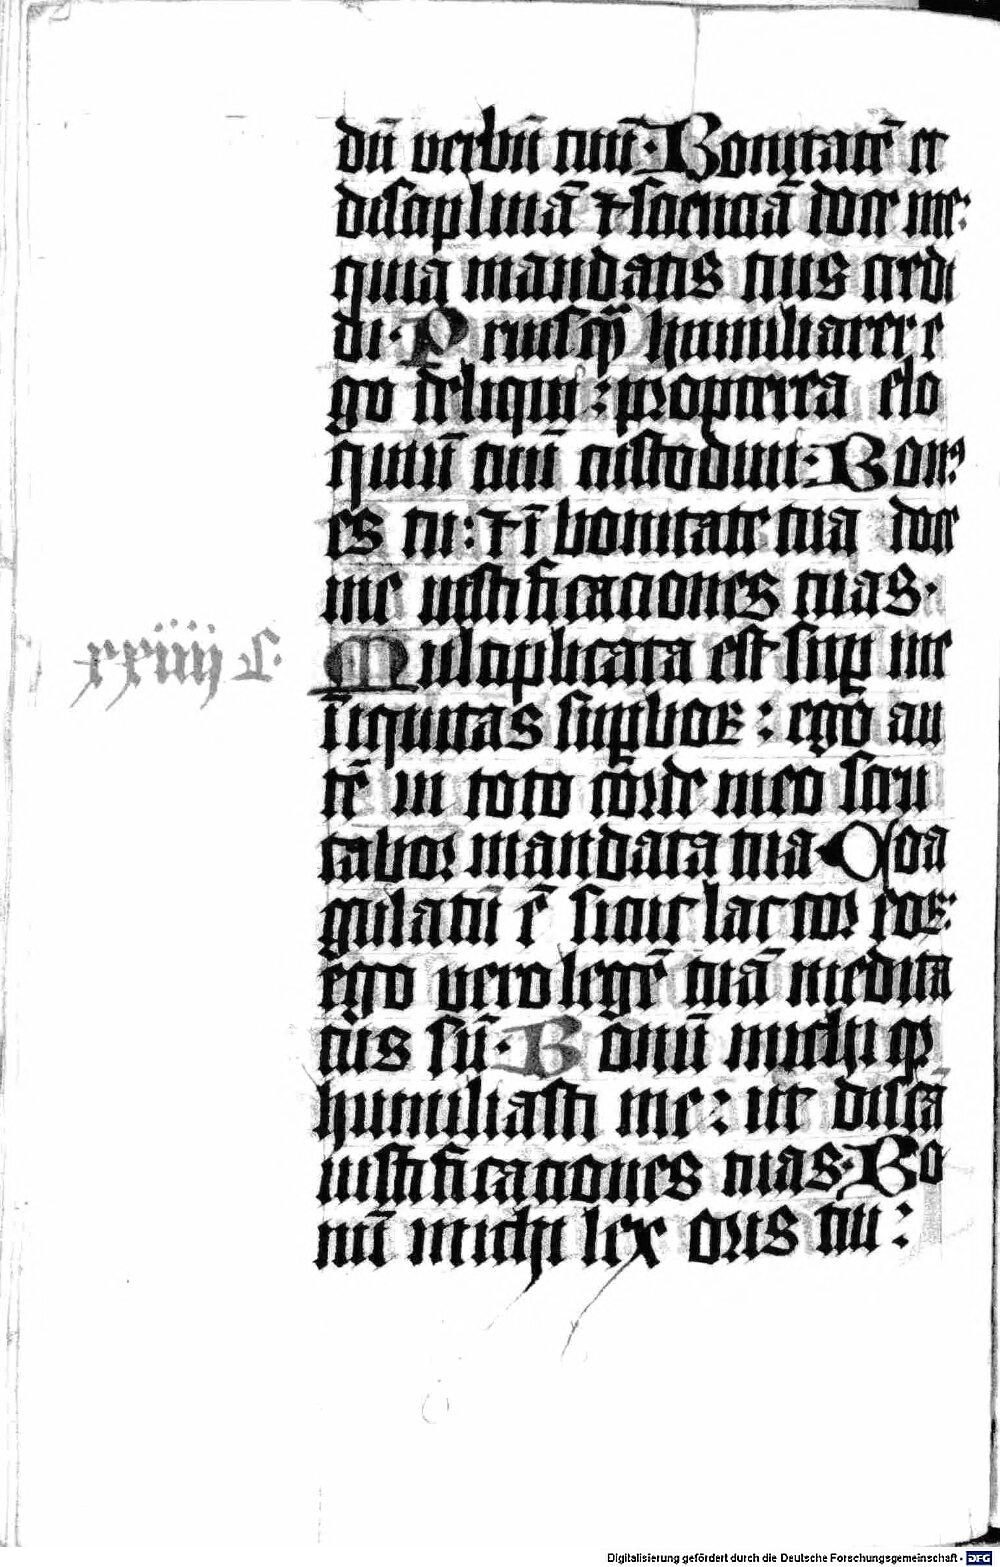 dū verbū tuū. Bonitatē et
disciplinā ⁊ scienciā doce me:
quia mandatis tuis credi
di. Priusq̄ humiliarer e
go deliqui: propterea elo
quiū tuū custodiui. Bonꝰ
es tu: ⁊ ī bonitate tua doce
me iustificaciones tuas.
xxiiij C.
Multiplicata est suꝑ me
īiquitas suꝑboꝝ: ego au
tē in toto corde meo scru
tabor mandata tua. Coa
gulatū ē sicut lac cor eoꝝ:
ego vero legē tuā medita
tus sū. Bonū michi qꝛ
humiliasti me: ut discā
iustificaciones tuas. Bo
nū michi lex oris tui:
Digitalisierung gefördert durch die Deutsche Forschungsgemeinschaft - DFG